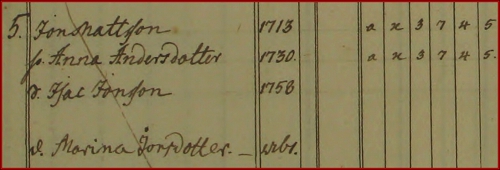 5. Jon Mattsson 1713 a x 3 7 4 5
h. Anna Andersdotter 1730. a x 3 7 4 5.
s. Isac Jonsson 1758
d. Marina Jonsdotter.